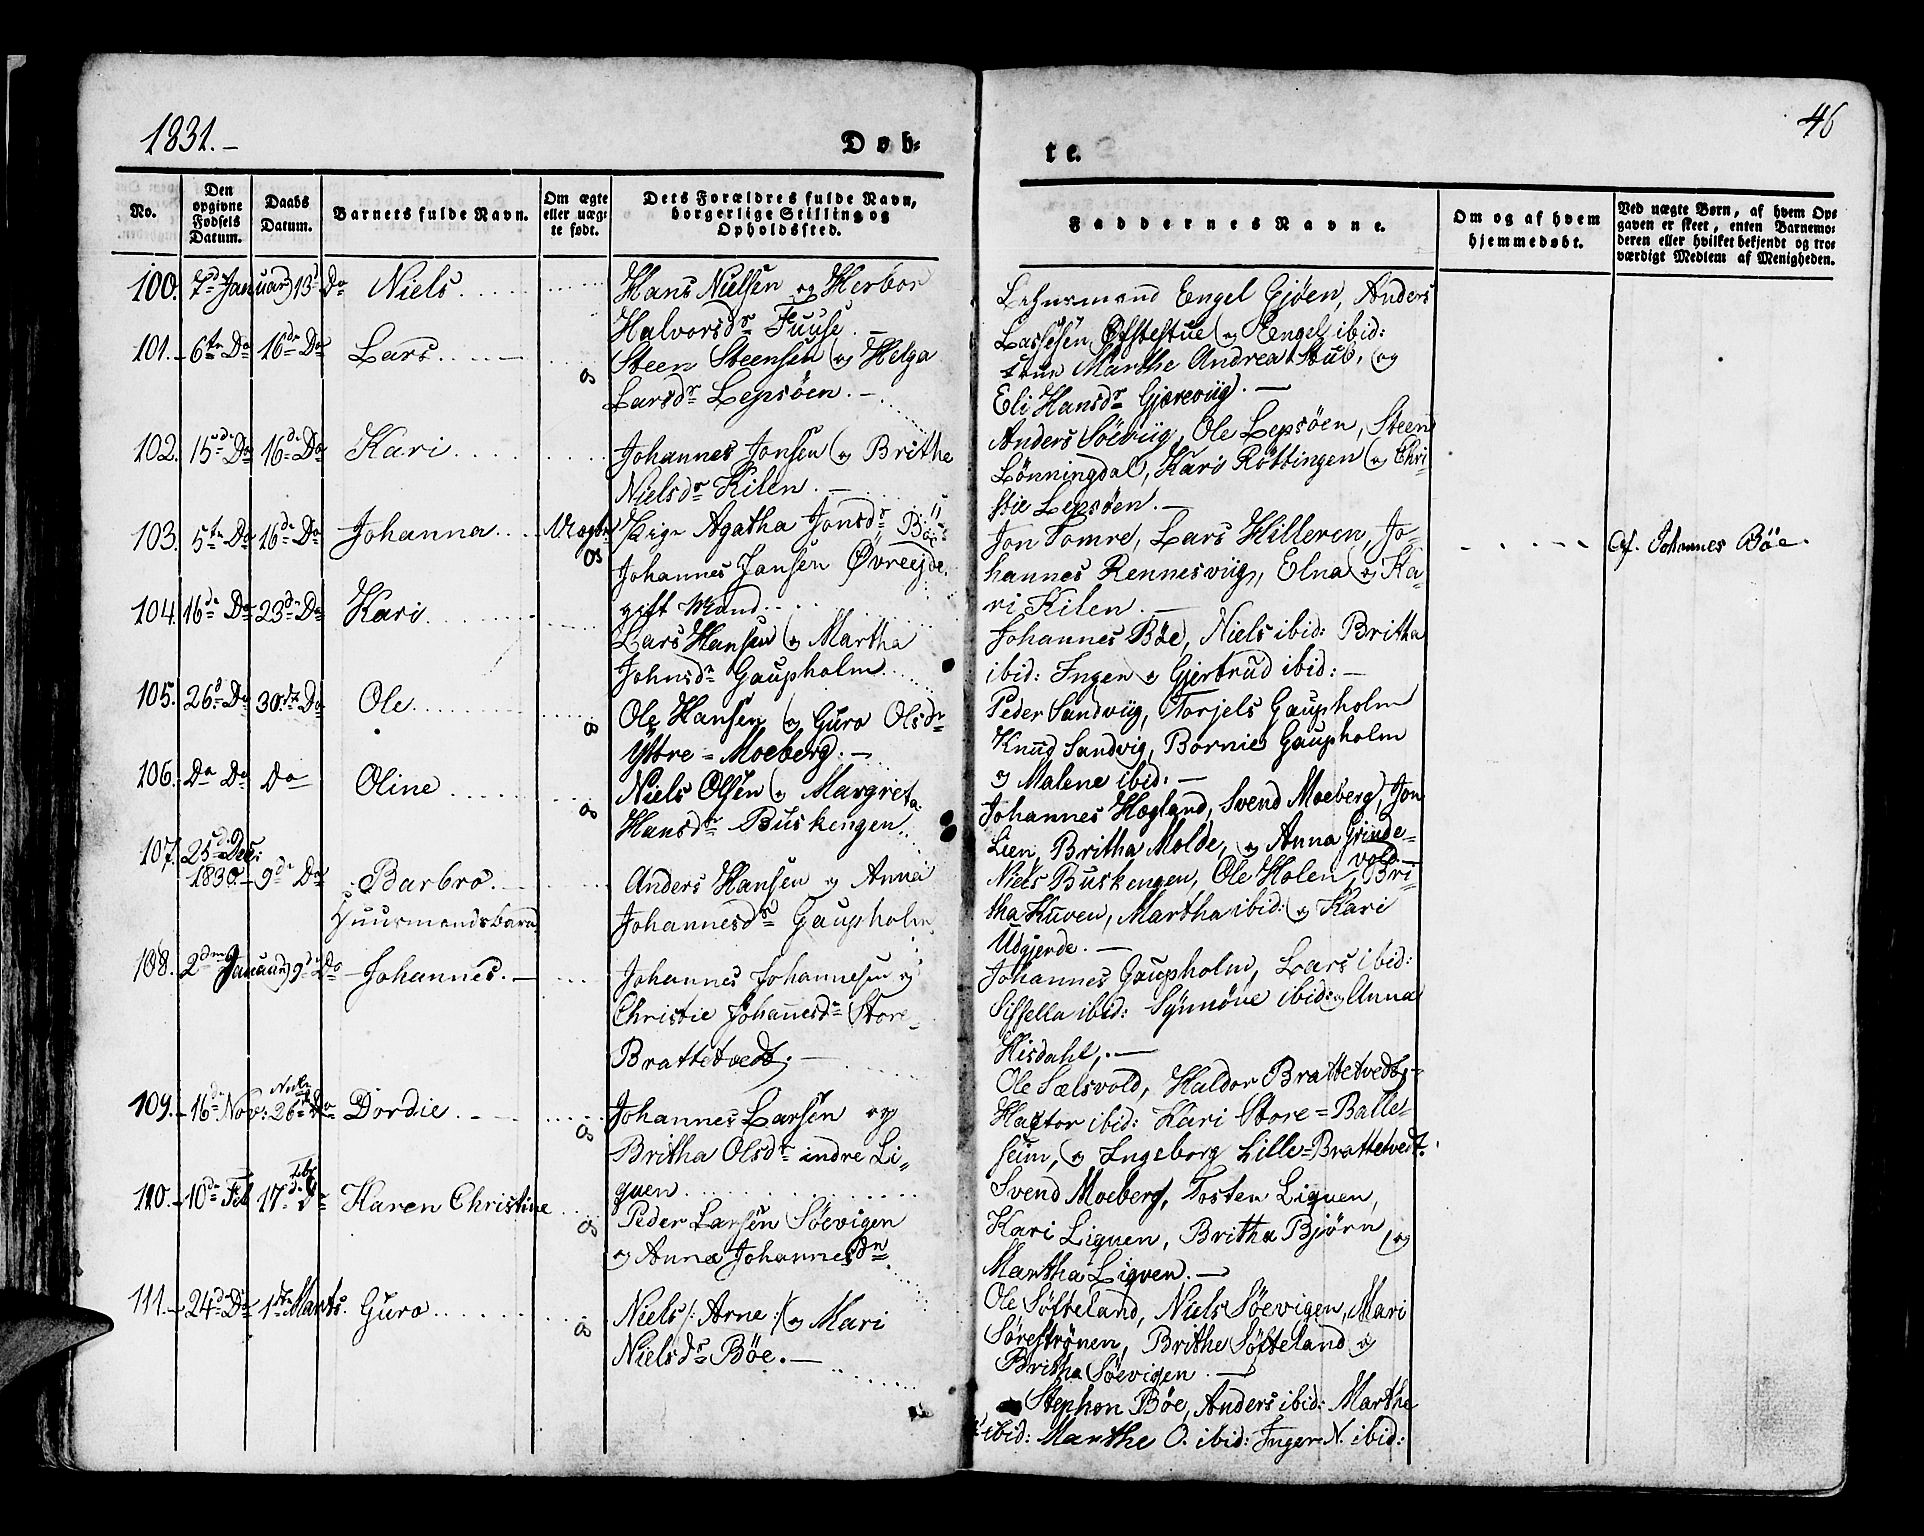 1831.-
Døb-
te.
46
No.
Den opgivne Fødsels Datum.
Daabs Datum.
Barnets fulde Navn.
Om ægte eller uægte født.
Dets Forældres fulde Navn, borgerlige Stilling og Opholdssted.
Faddernes Navne.
Om og af hvem hjemmedøbt.
Ved uægte Børn, af hvem Opgaven er skeet, enten Barnemoderen eller hvilket bekjendt og troværdigt Medlem af Menigheden.
100. 7de Januar 13de Do Niels
Hans Nielsen og Herbor
Halvorsdr Fuuse.-
101.- 6te Do 16de Do Lars
Steen Steensen og Helga
Larsdr Lepsöen.-
102. 15de Do 16de Do Kari
Johannes Jonsen og Brithe
Nielsdr Kilen.-
103. 5te Do 16de Do Johanna Uægte
Pige Agatha Jonsdr Böe
Johannes Jansen Øvreejde.
gift Mand
104. 16de Do 23de Do Kari
Lars Hansen og Martha
Johnsdr Gaupholm.
105. 26de Do 30de Do Ole
Ole Hansen og Guro Olsdr
Yttre-Moeberg.-
106. Do Do Do Oline
Niels Olsen og Margreta
Hansdr Buskengen.
107. 25de Dec:
1830 9de Do Barbro.
Huusmandsbarn
Anders Hansen og Anna
Johannesdr Gaupholm
108. 2den Januar 9de Do Johannes.-
Johannes Johannesen og
Christie Johanesdr Store-
Brattetvedt.-
109.- 16de Nov: 26de Do Dordie
Johannes Larsen og
Britha Olsdr indre Li-
guen
110.- 10de Feb 17de Do Karen Christine
Peder Larsen Söevigen
og Anna Johannesdr
111.- 24de Do 1ste Marts. Guro
Niels /: Arne :/ og Mari
Nielsdr Böe.-
Lehnsmand Engel Gjöen, Anders
Lassesen Ofstestue og Engel ibid:
Marthe Andrea Stub, og
Eli Hansdr Gjæreviig.-
Anders Söeviig, Ole Lepsöen, Steen
Lönningdal, Kari Röttingen og Chri-
stie Lepsöen.-
Jon Tomre, Lars Hilleren, Jo-
hannes Rennesviig, Elna og Ka-
ri Kilen.-
Af. Johannes Böe.
Johannes Böe, Niels ibid: Britha
ibid: Ingen og Gjertrud ibid:-
Peder Sandviig, Torjels Gaupholm
Knud Sandvig, Bornie Gaupholm
og Malene ibid:-
Johannes Hogland, Svend Moeberg, Jon
Lien, Britha Molde, og Anna Grinde-
vold.-
Niels Buskengen, Ole Holen, Bri-
tha Kuven, Martha ibid: og Kari
Udgjerde.-
Johannes Gaupholm, Lars ibid:
Sissella ibid: Synnöve ibid: og Anna
Hisdahl,.-
Ole Sælsvold, Haldor Brattetvedt,-
Hactor ibid: Kari Store=Balle-
seim, og Ingeborg Lille=Brattetvedt.
Svend Moeberg, Tosten Liguen,
Kari Liguen, Britha Björn, og
Martha Ligven.-
Ole Söfteland, Niels Söevigen, Mari
Söreströnen, Brithe Söfteland og
Britha Söevigen.-
Stephen Böe, Anders ibid: Marthe
ibid: Marthe O. ibid: Inger N. ibid: